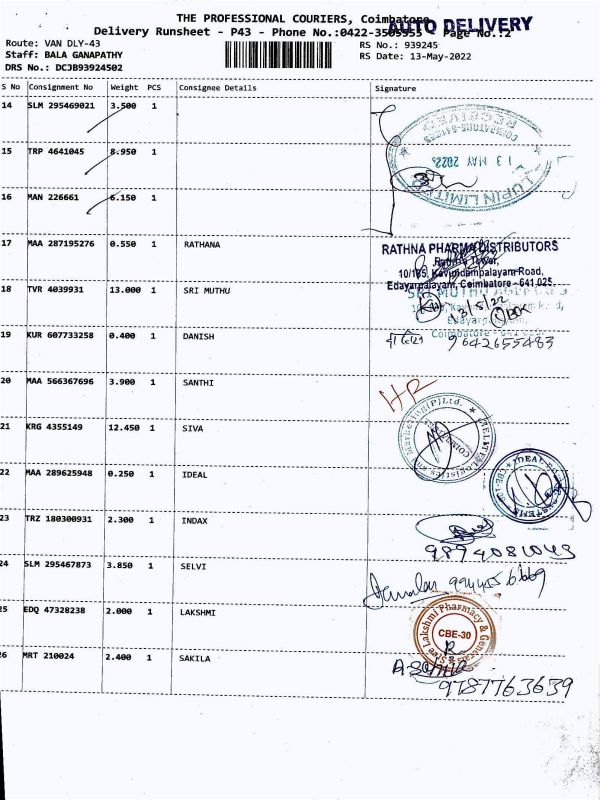 THE PROFESSIONAL COURIERS, Coimbatore
AUTO DELIVERY
Delivery Runsheet - P43 - Phone No.:0422-3505955 - Page No.:2
Route: VAN DLY-43
RS No.: 939245
Staff: BALA GANAPATHY
RS Date: 13-May-2022
DRS No.: DCJB93924502
S No Consignment No Weight PCS Consignee Details Signature
14 SLM 295469021 3.500 1
COIMBATORE
RECEIVED
13 MAY 2022
LUPIN LIMITED
15 TRP 4641045 8.950 1
16 MAN 226661 6.150 1
17 MAA 287195276 0.550 1 RATHANA
RATHNA PHARMA DISTRIBUTORS
Rathna Tower,
10/185, Kavundampalayam Road,
Edayarpalayam, Coimbatore - 641 025.
18 TVR 4039931 13.000 1 SRI MUTHU
SRI MUTHU AGENCIES
Coimbatore
19 KUR 607733258 0.400 1 DANISH
9642655483
20 MAA 566367696 3.900 1 SANTHI
HR
21 KRG 4355149 12.450 1 SIVA
Marketing(P)Ltd.
22 MAA 289625948 0.250 1 IDEAL
IDEAL
SYSTEMS
23 TRZ 180300931 2.300 1 INDAX
9874081049
24 SLM 295467873 3.850 1 SELVI
25 EDQ 47328238 2.000 1 LAKSHMI
Sree Lakshmi Pharmacy & Generals
CBE-30
26 MRT 210024 2.400 1 SAKILA
9787763639